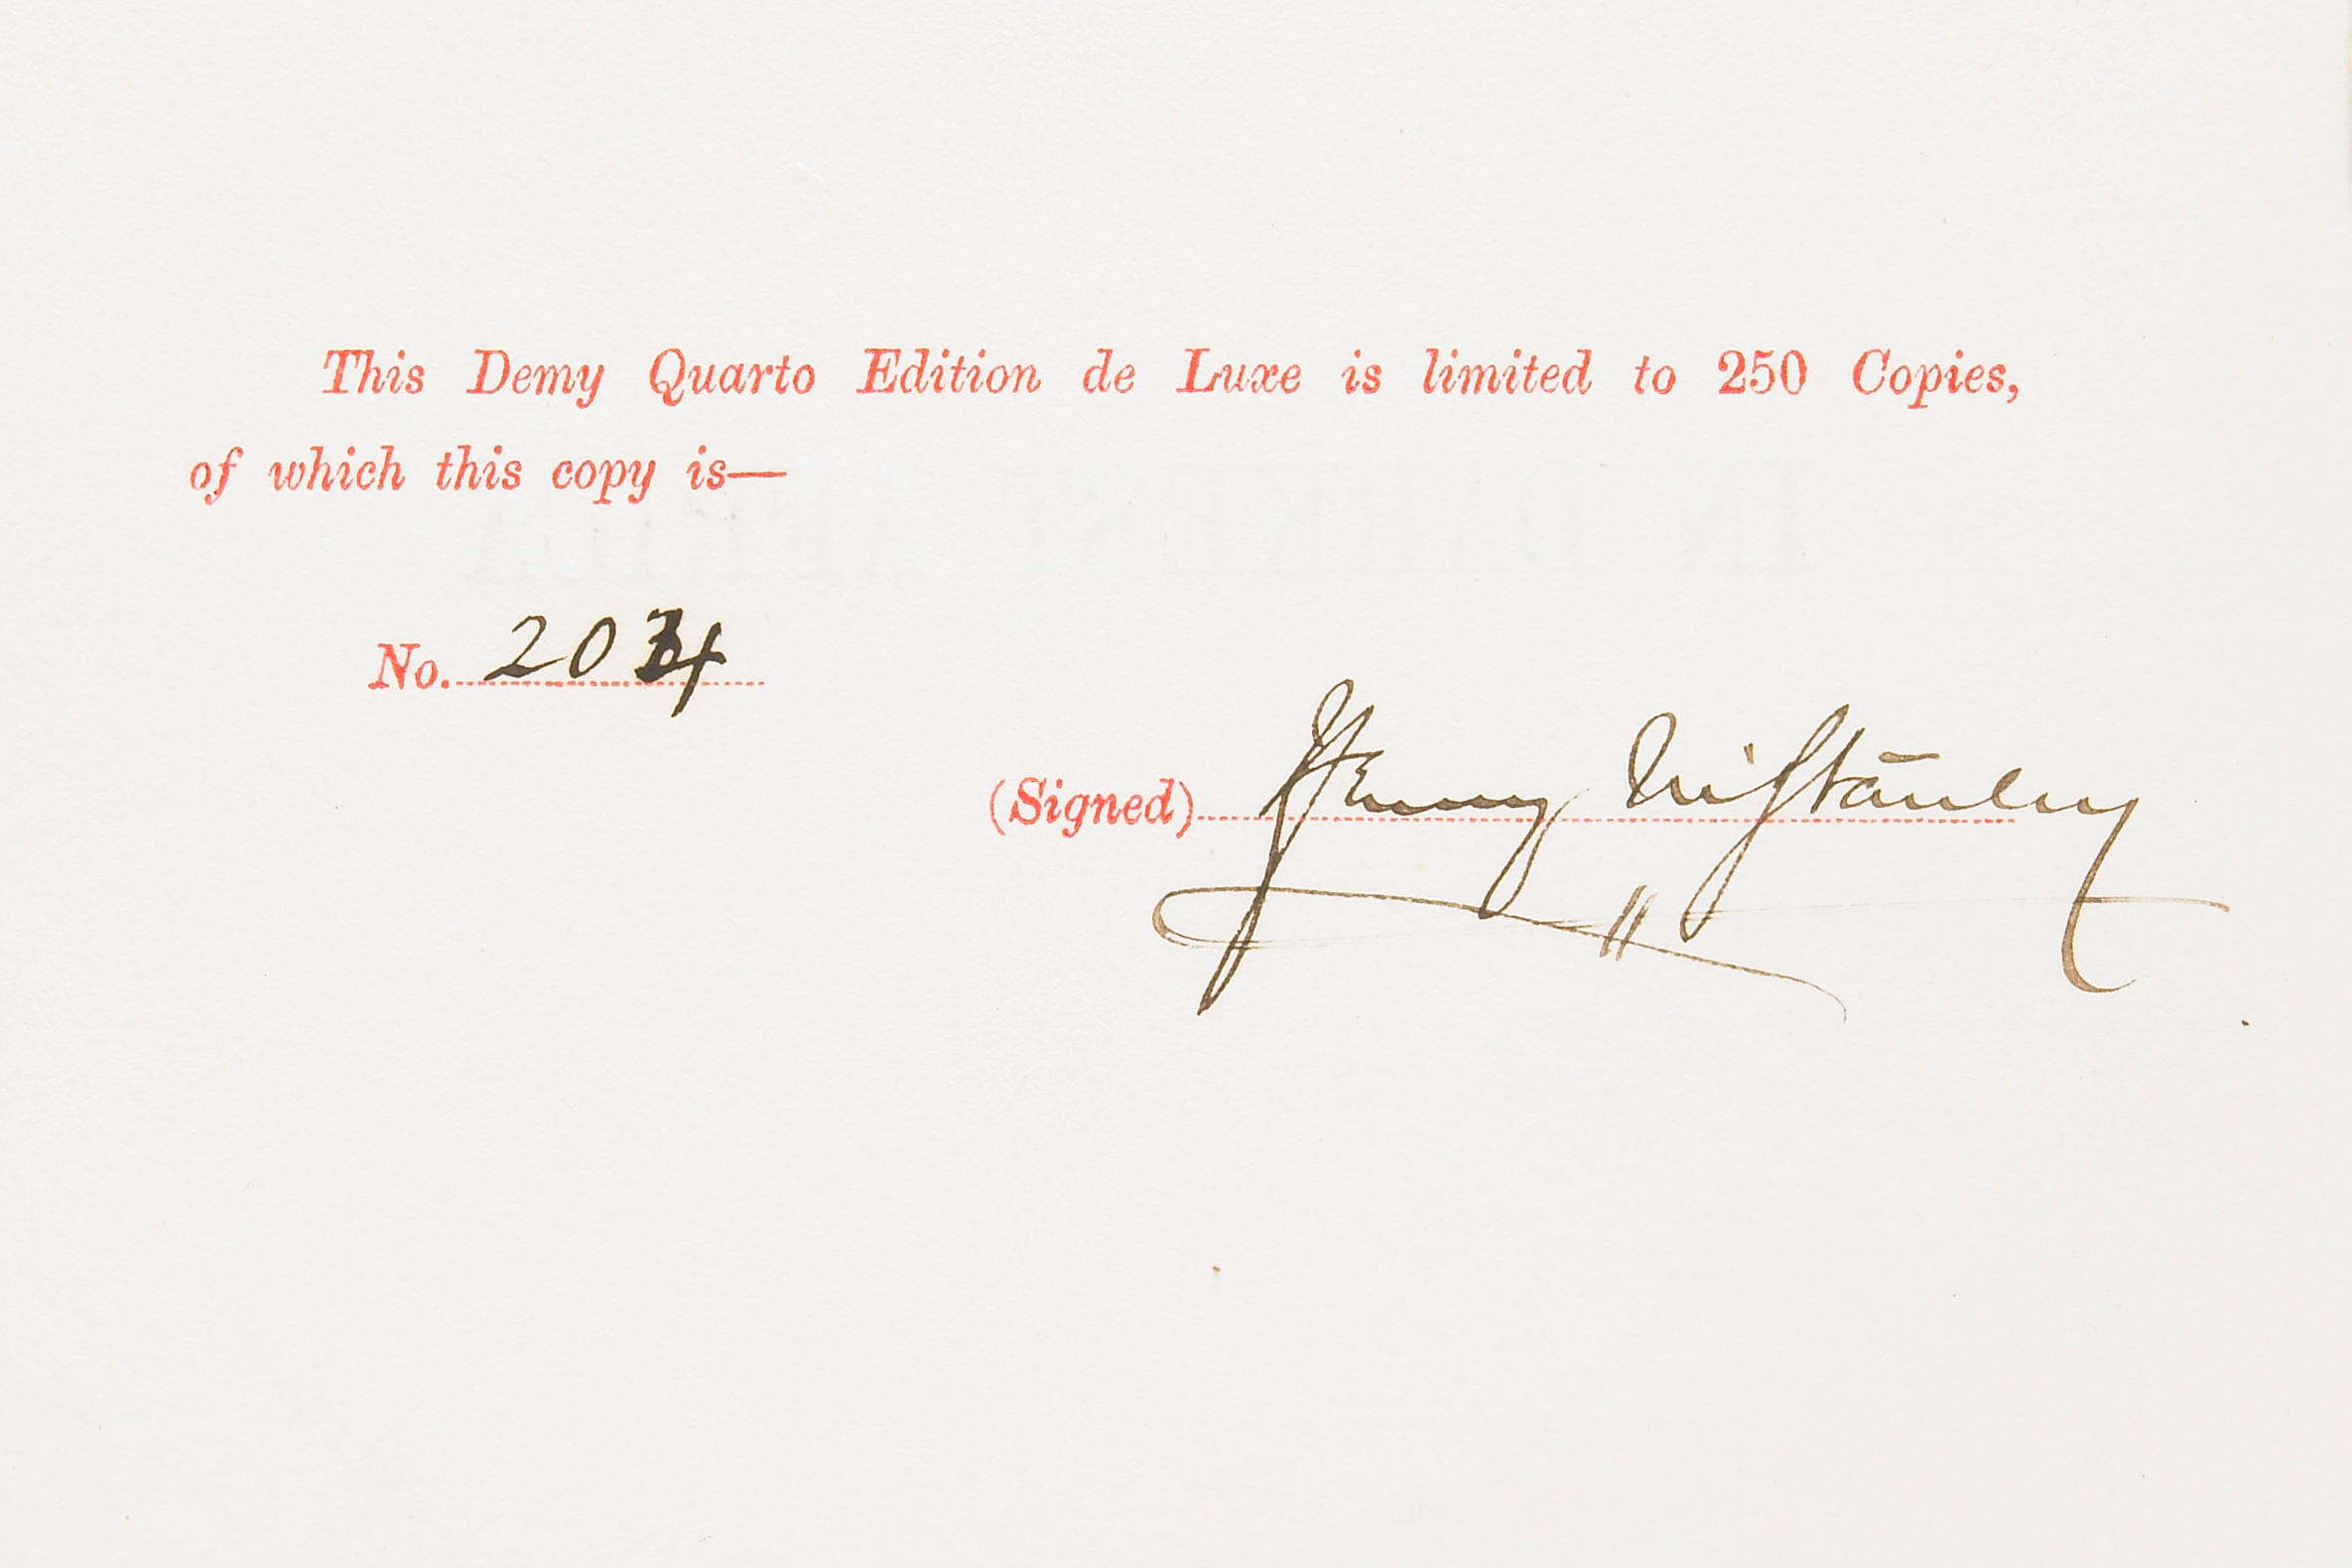 This Demy Quarto Edition de Luxe is limited to 250 Copies,
of which this copy is—
No. 204
(Signed) Henry M Stanley